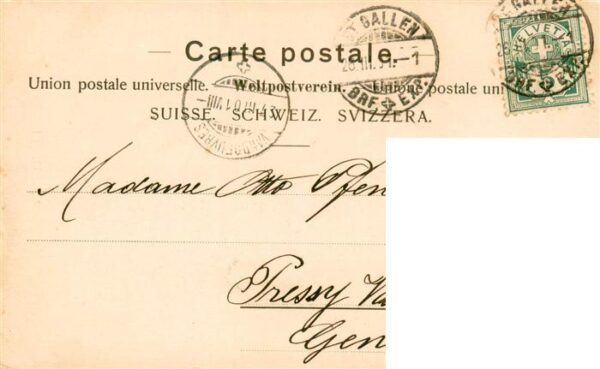 Carte postale.
Union postale universelle. — Weltpostverein. — Unione postale uni
SUISSE. SCHWEIZ. SVIZZERA.
ST GALLEN
BRF. EXP.
HELVETIA
GALLEN
VANDOEUVRES
Madame Otto Pfen
Pressy Va
Gen